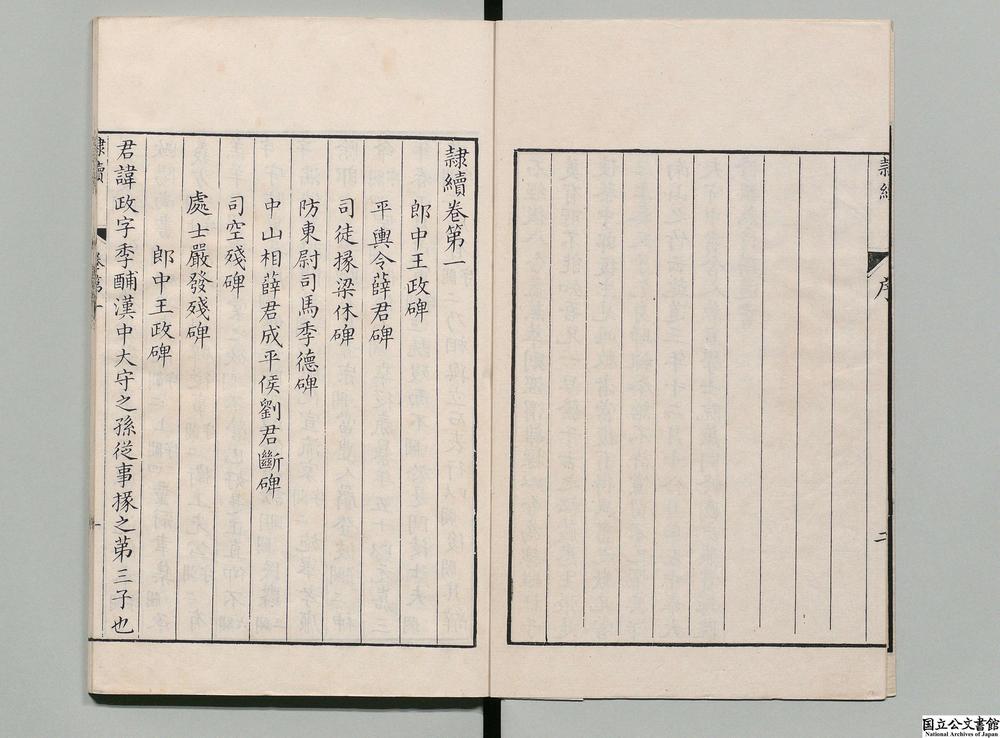 隸續
序
二
隸續卷第一
郎中王政碑
平輿令薛君碑
司徒掾梁休碑
防東尉司馬季德碑
中山相薛君成平侯劉君斷碑
司空殘碑
處士嚴發殘碑
郎中王政碑
君諱政字季酺漢中大守之孫從事掾之第三子也
隸續
卷第一
一
国立公文書館
National Archives of Japan